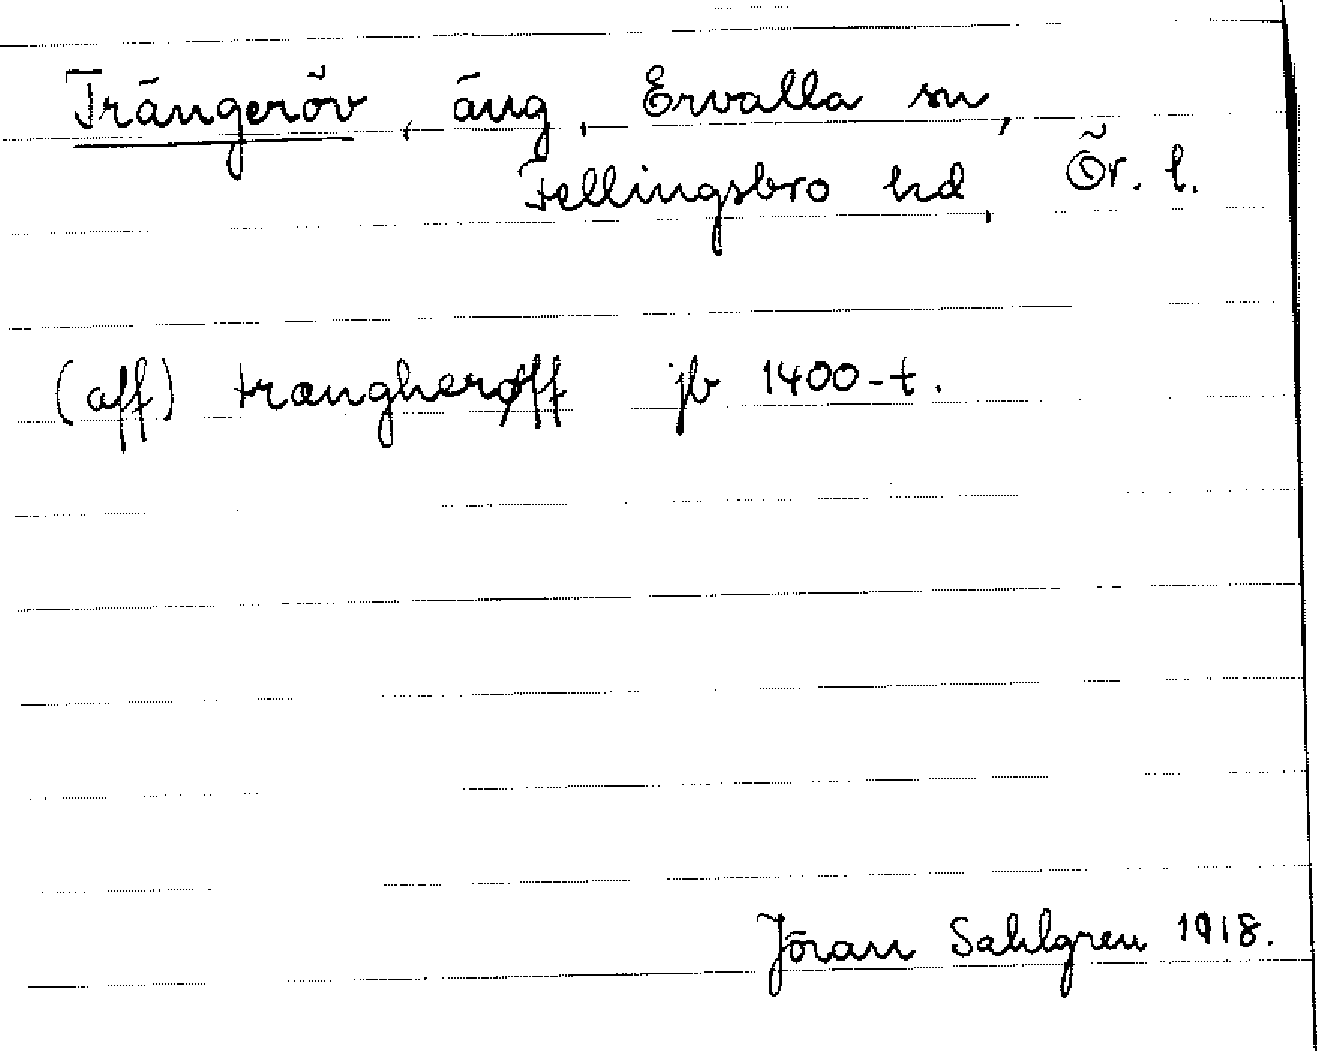 Trängeröv, äng, Ervalla sn,
Fellingsbro hd, Ör. l.
(aff) trængherøff jb 1400-t.
Jöran Sahlgren 1918.